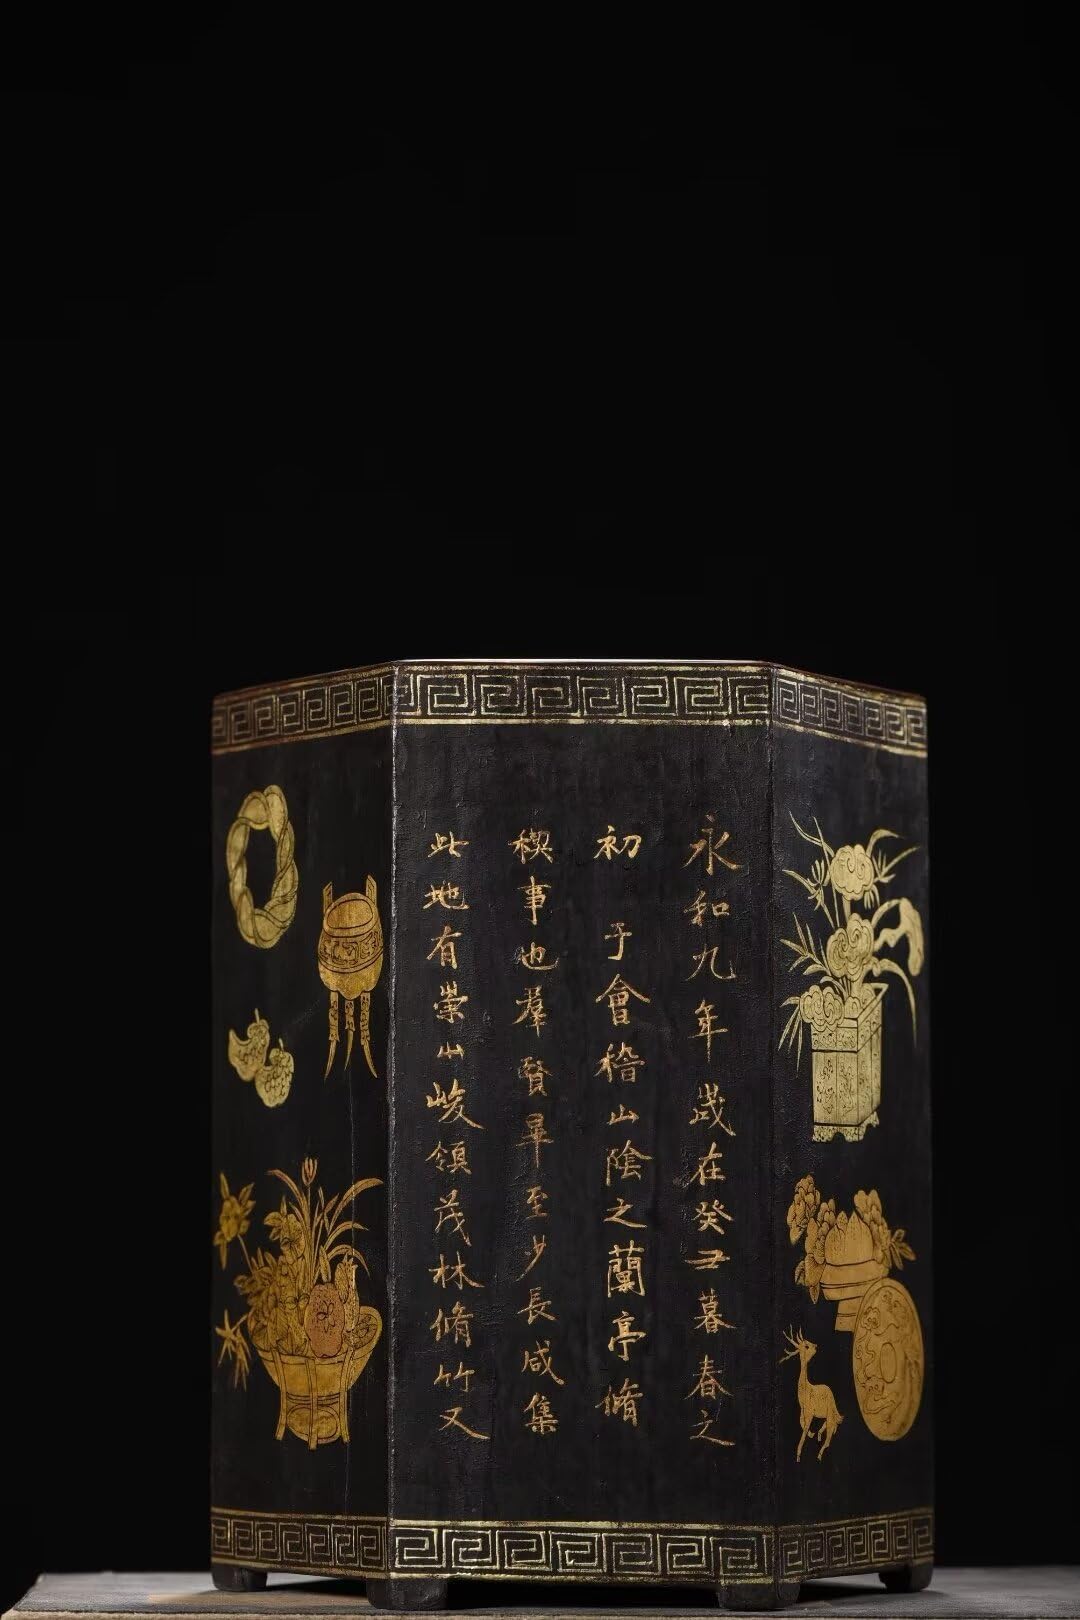 永和九年歲在癸丑暮春之
初于會稽山陰之蘭亭脩
稧事也羣賢畢至少長咸集
此地有崇山峻領茂林脩竹又